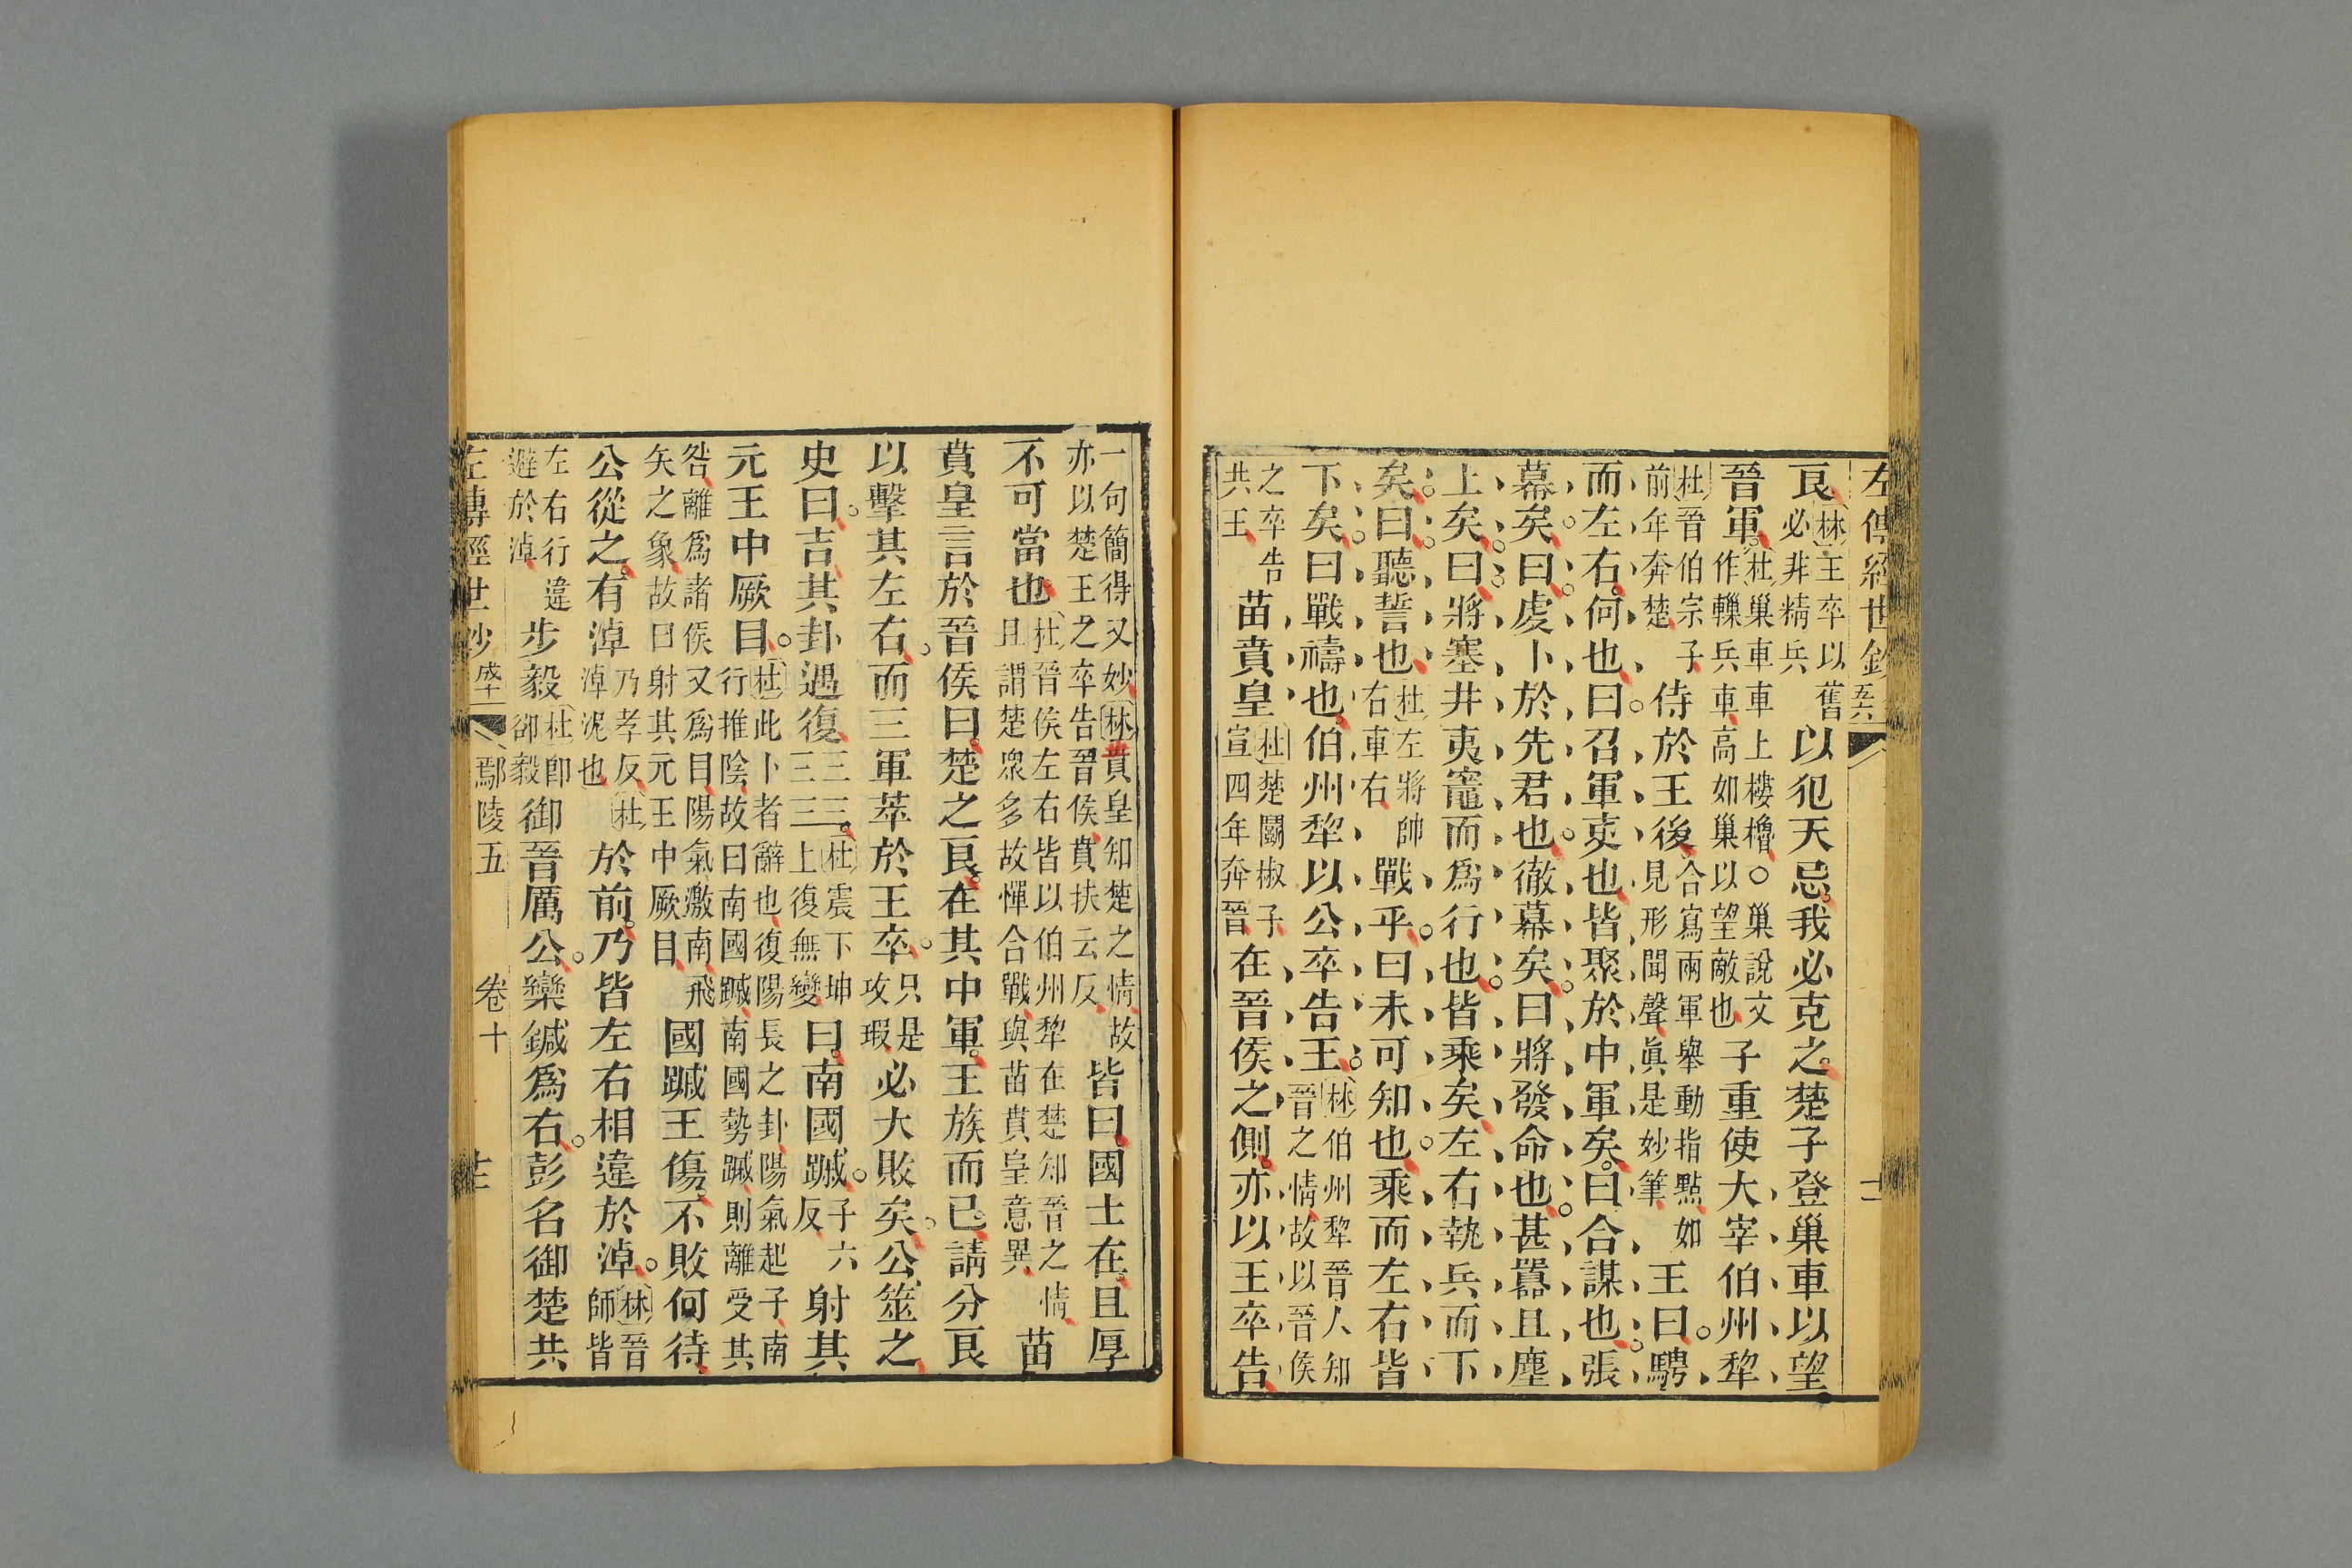 左傳經世鈔
良林王卒以舊
必非精兵
以犯天忌我必克之楚子登巢車以望
晉軍杜巢車車上樓櫓○巢說文
作轈兵車高如巢以望敵也
子重使大宰伯州犂
杜晉伯宗子
前年奔楚
侍於王後合寫兩軍舉動指點如
見形聞聲眞是妙筆
王曰騁
而左右何也曰召軍吏也皆聚於中軍矣曰合謀也張
幕矣曰虔卜於先君也徹幕矣曰將發命也甚囂且塵
上矣曰將塞井夷竈而爲行也皆乘矣左右執兵而下
矣曰聽誓也杜左將帥
右車右
戰乎曰未可知也乘而左右皆
下矣曰戰禱也伯州犂以公卒告王林伯州犂晉人知
晉之情故以晉侯
之卒告
共王
苗賁皇杜楚鬭椒子
宣四年奔晉
在晉侯之側亦以王卒告
一句簡得又妙林賁皇知楚之情故
亦以楚王之卒告晉侯賁扶云反
皆曰國士在且厚
不可當也杜晉侯左右皆以伯州犂在楚知晉之情
且謂楚衆多故憚合戰與苗賁皇意異
苗
賁皇言於晉侯曰楚之良在其中軍王族而已請分良
以擊其左右而三軍萃於王卒只是
攻瑕
必大敗矣公筮之
史曰吉其卦遇復杜震下坤
上復無變
曰南國䠞子六
反
射其
元王中厥目杜此卜者辭也復陽長之卦陽氣起子南
行推陰故曰南國䠞南國勢䠞則離受其
咎離爲諸侯又爲目陽氣激南飛
矢之象故曰射其元王中厥目
國䠞王傷不敗何待
公從之有淖乃孝反杜
淖泥也
於前乃皆左右相違於淖林晉
師皆
左右行違
避於淖
步毅杜卽
御毅
御晉厲公欒鍼爲右彭名御楚共
左傳經世鈔
鄢陵五
卷十